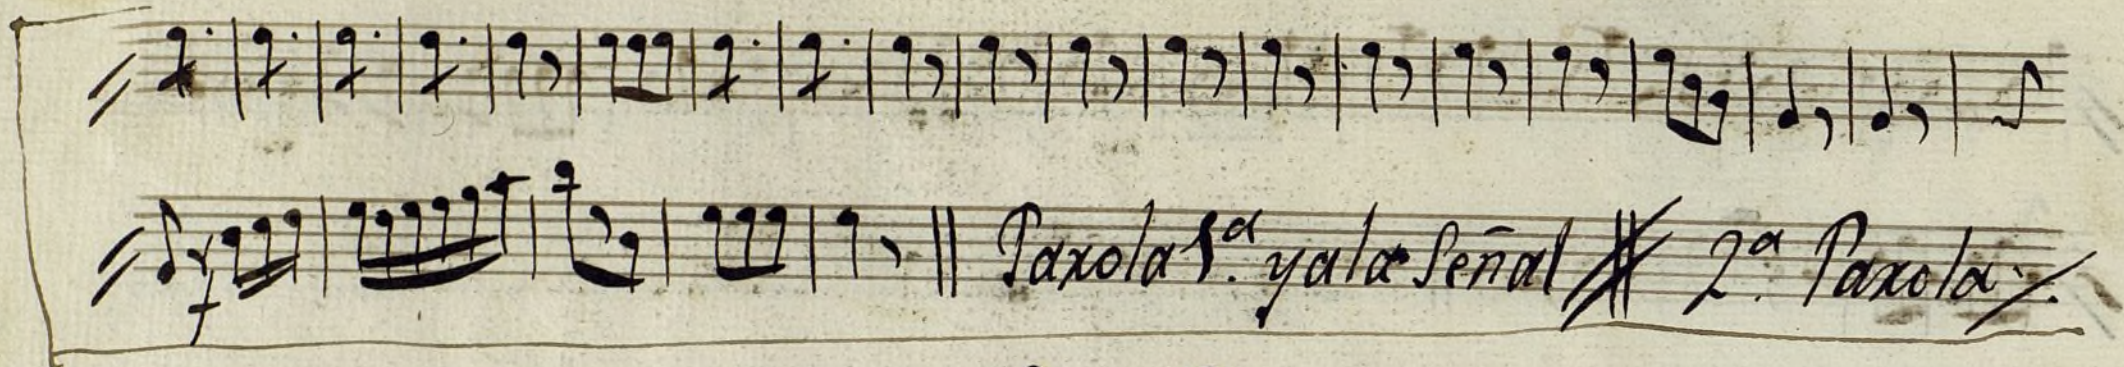 Parola 1.ª y a la Señal 2.ª Parola